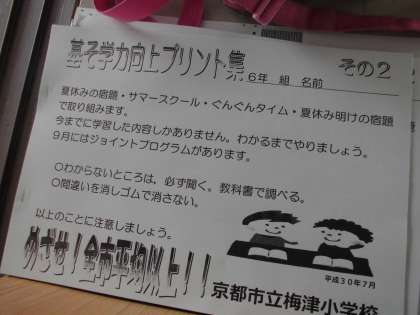 基そ学力向上プリント集 その2
6年 組 名前
夏休みの宿題・サマースクール・ぐんぐんタイム・夏休み明けの宿題
で取り組みます。
今までに学習した内容しかありません。わかるまでやりましょう。
9月にはジョイントプログラムがあります。
○わからないところは，必ず聞く。教科書で調べる。
○間違いを消しゴムで消さない。
以上のことに注意しましょう。
めざせ！全市平均以上！！
平成30年7月
京都市立梅津小学校